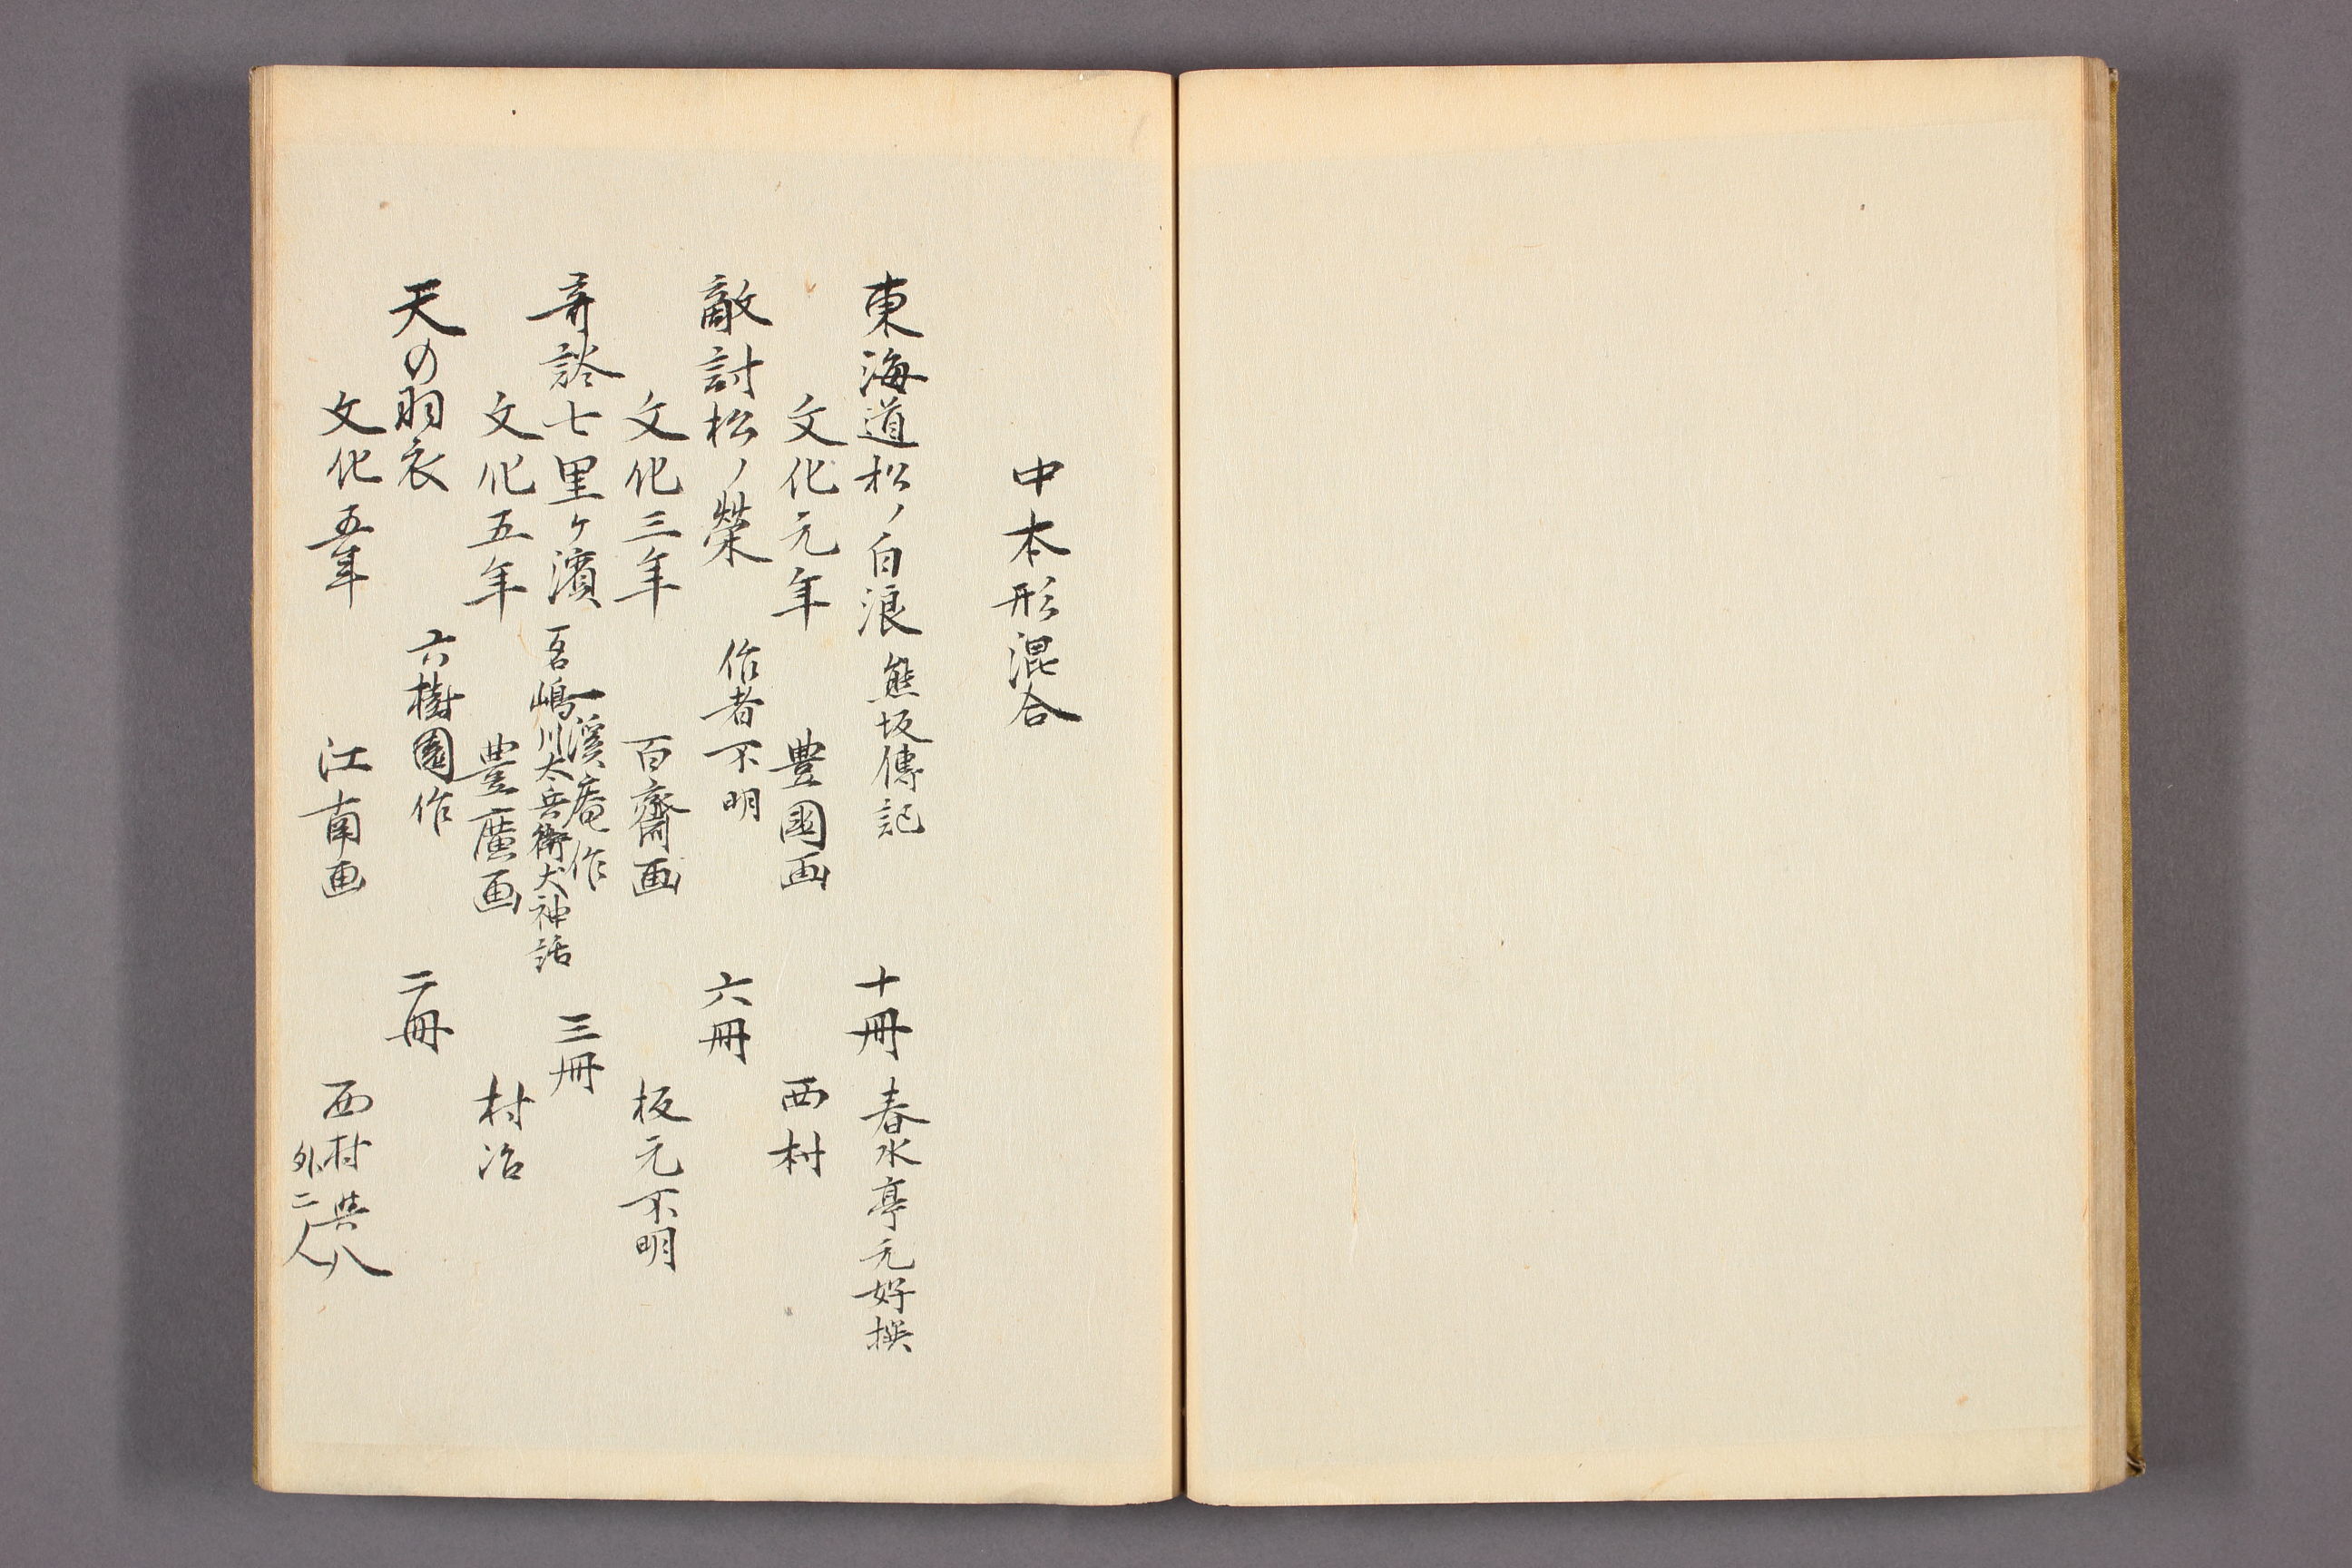 中本形混合
東海道松ノ白浪 熊坂傳記 十冊 春水亭元好撰
文化元年 豊國画 西村
敵討松ノ榮 作者不明 六冊
文化三年 百齋画 板元不明
奇談七里ヶ濱 一溪庵作 三冊
吾嶋川太兵衛犬神話
文化五年 豊廣画 村治
天の羽衣 六樹園作 二冊
文化五年 江南画 西村與八
外二人